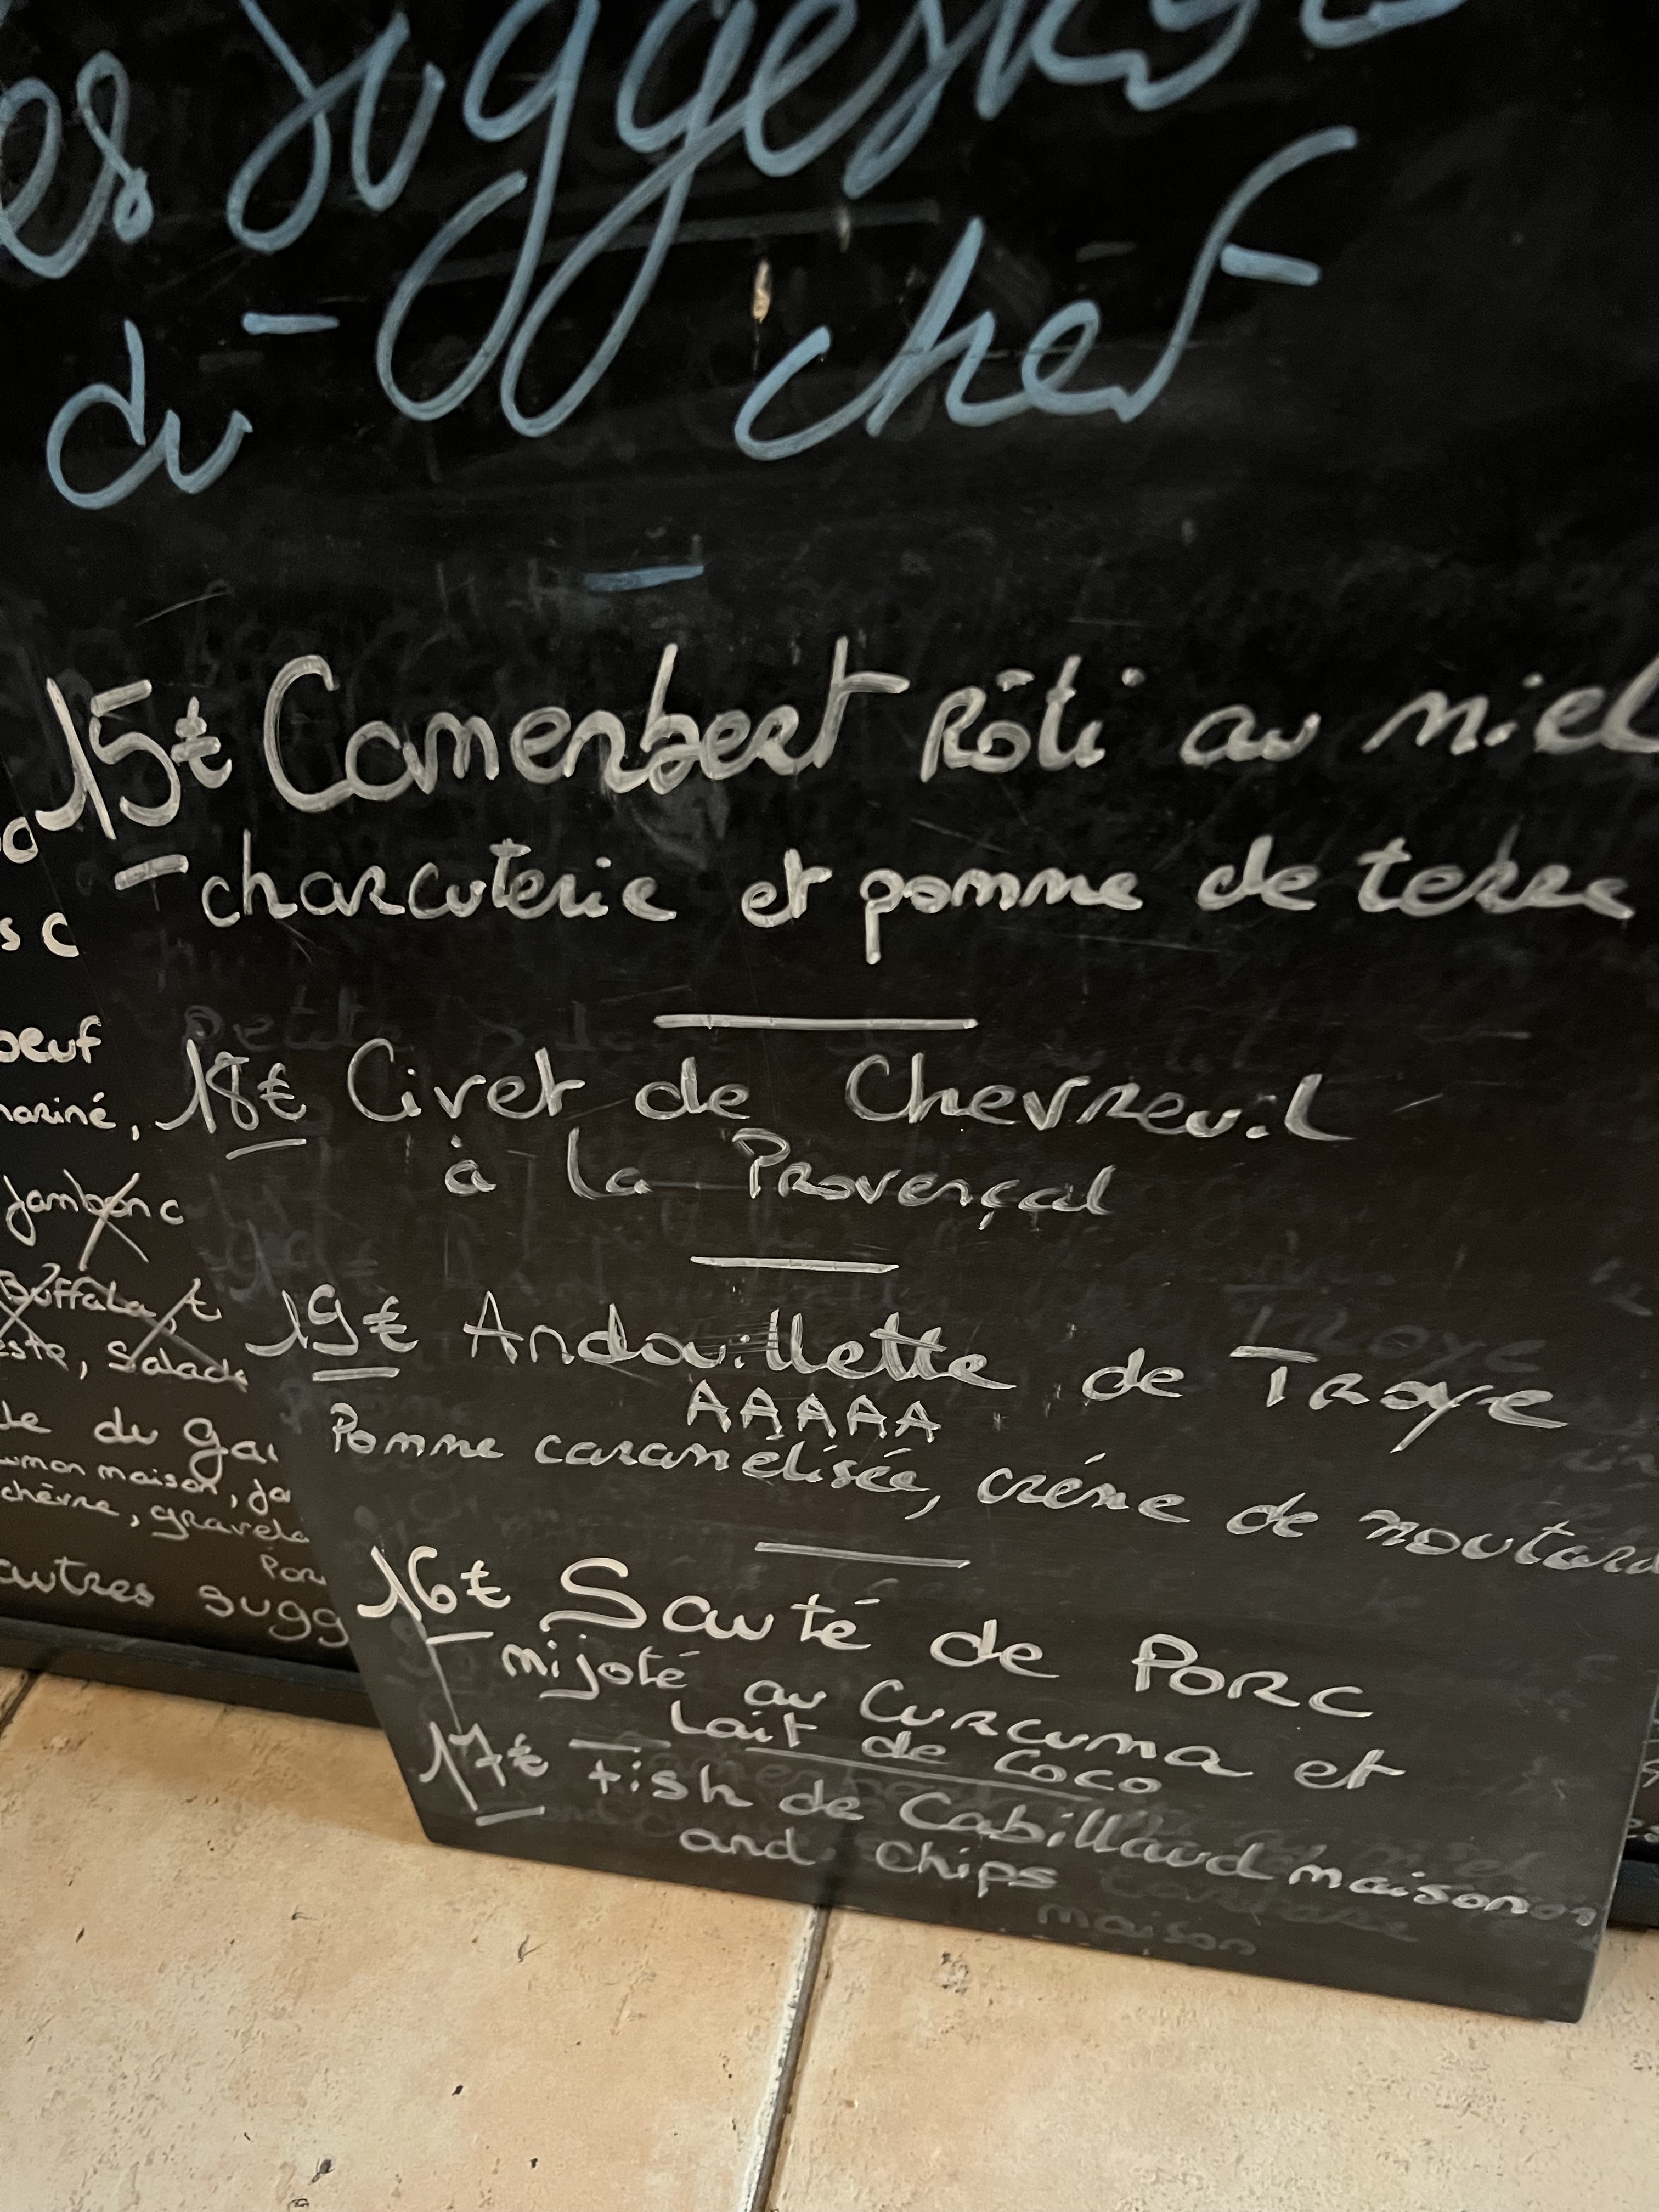 es suggestions
du chef
15€ Camenbert Rôti au miel
charcuterie et pomme de terre
18€ Civet de Chevreuil
à la Provençal
19€ Andouillette de Troye
AAAAA
Pomme caramélisée, créme de moutard
16€ Sauté de PORC
mijoté au Curcuma et
Lait de Coco
17€ Fish de Cabillaud maison
and chips
maison
s c
oeuf
mariné,
jambon c
Buffala, t
este, Salade
le du ga
umon maison, ja
chèvre, gravela
Por
autres sugg